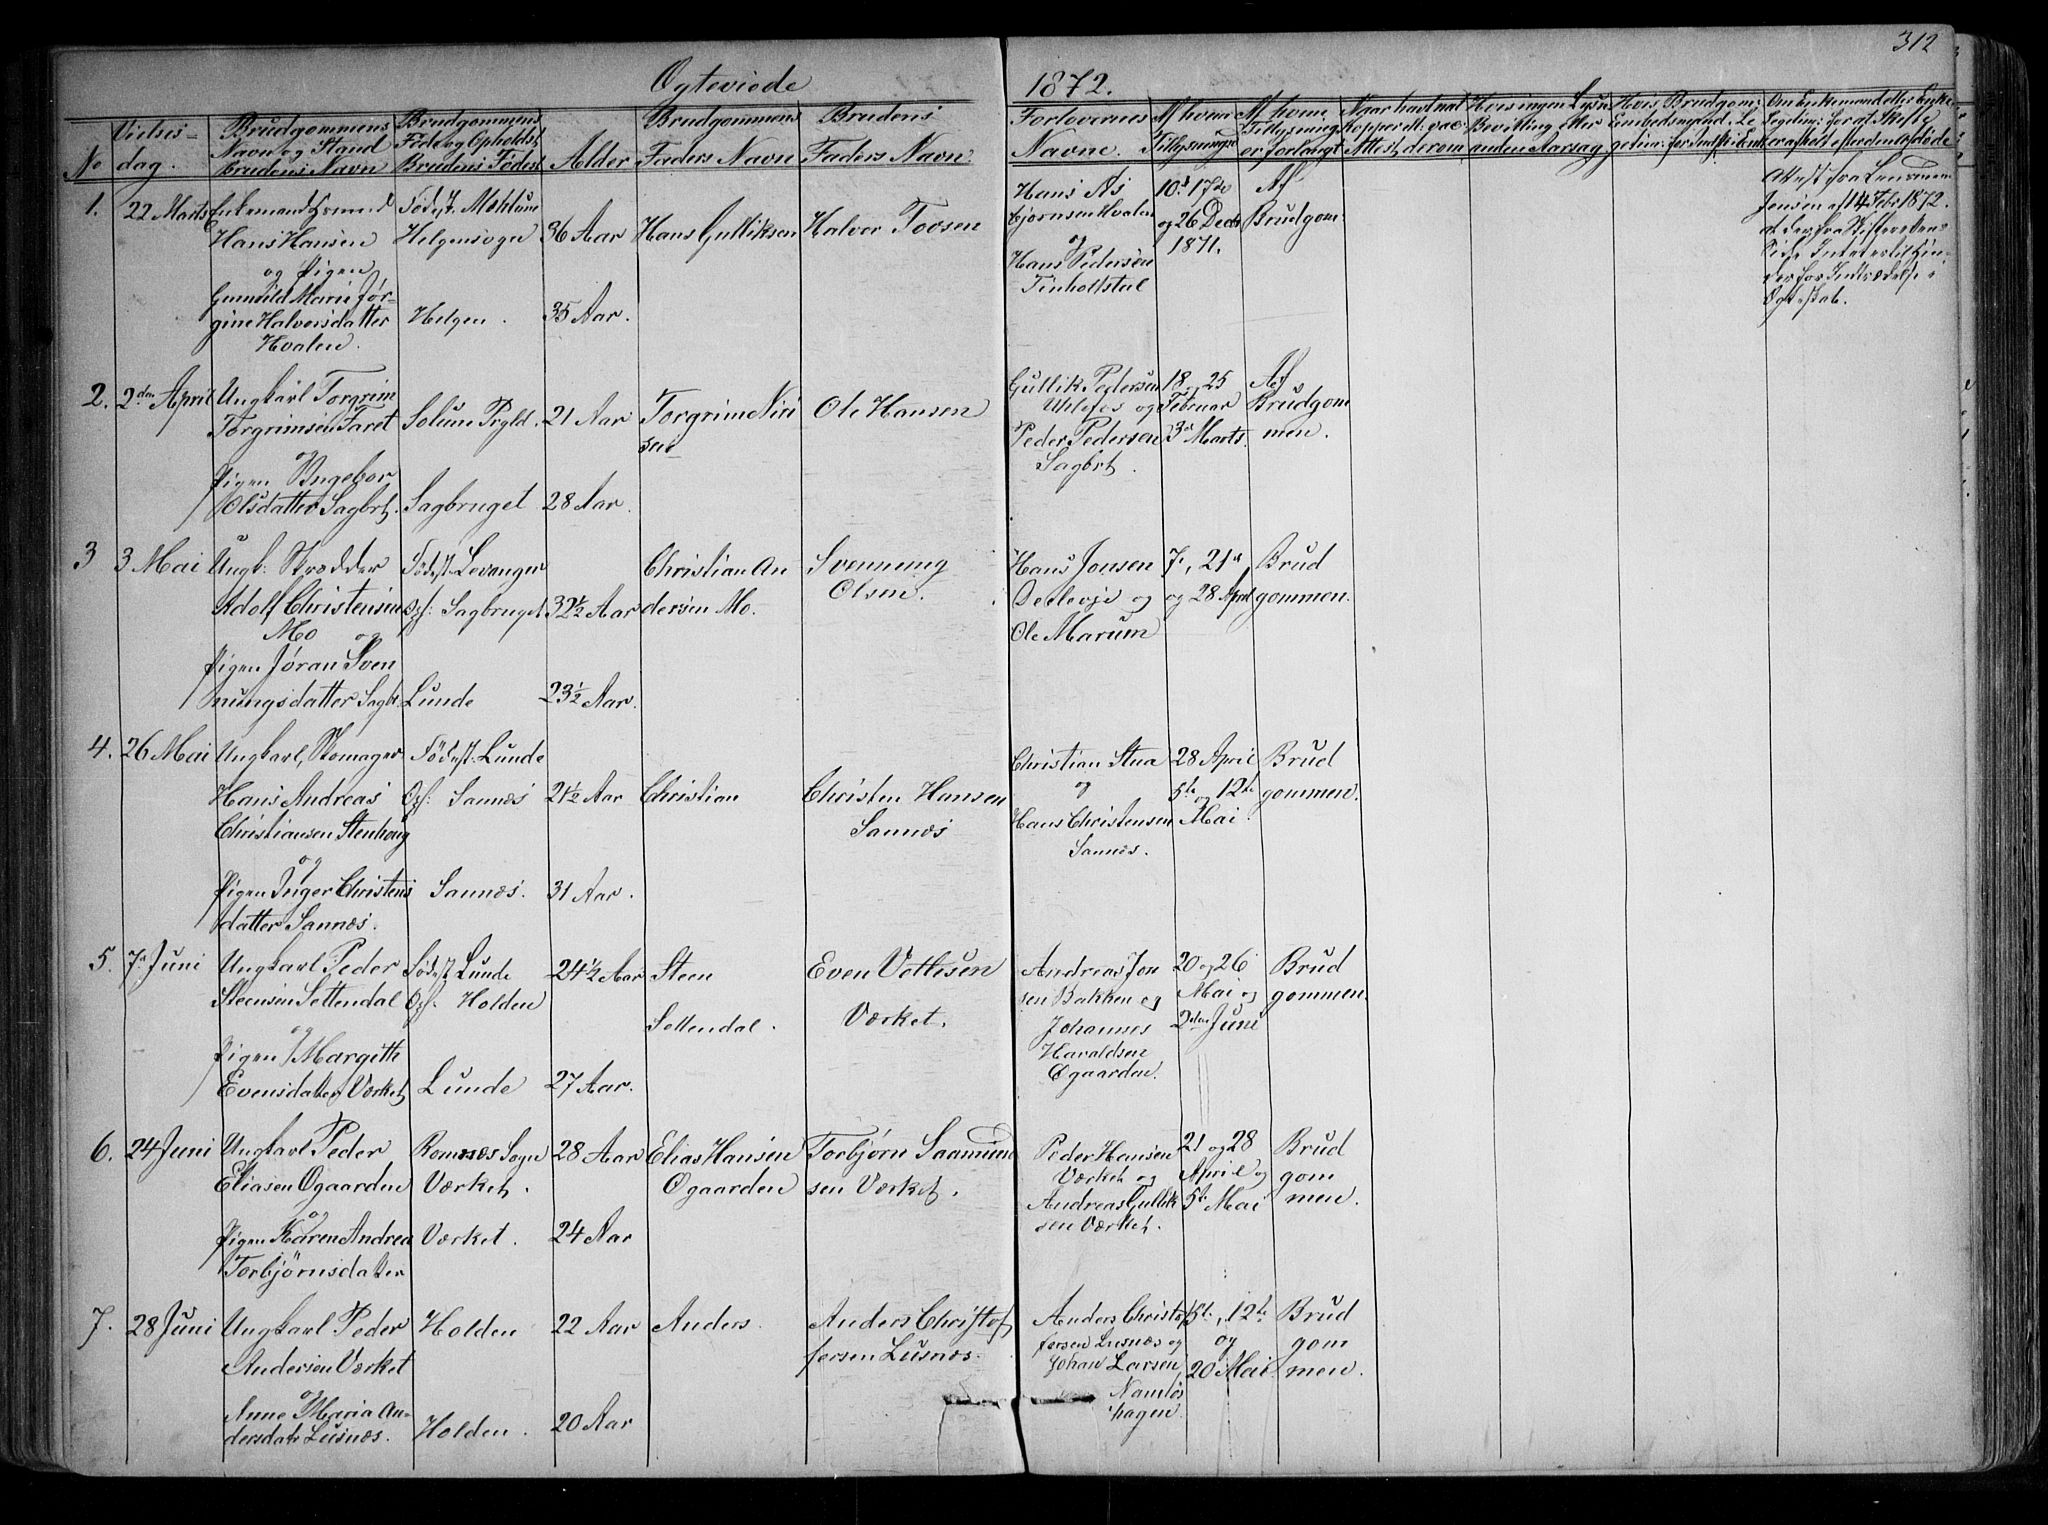 312
Ogteviede 1872.
No
Vielses-
dag.
Brudgommens
Navn og Stand
Brudens Navn
Brudgommens
Føde og Opholdst
Brudens Fødest
Alder
Brudgommens
Faders Navn
Brudens
Faders Navn
Forlovernes
Navne.
Af hvem
Tillysninge
Af hvem
Tillysning
er forlangt
Naar havt nat
kopper
Attest derom
Hvis ingen Lysn
Bevilling eller
anden Aarsag
Hvis Brudgom:
Embedsmand
Om Enkemand eller Enke
Legitim: for at Skifte
er afholt efter den afdøde
1.
22 Marts
Enkemand
Hans Hansen
og Pigen
Gunnild Marie Jør-
gine Halvorsdatter
Hvalen.
Fødest. Mæhlum
Helgensogn
Helgen.
36 Aar
35 Aar.
Hans Gulliksen
Halvor Tovsen
Hans As
bjørnsen Hvalen
og
Hans Pedersen
Tinholtstul
10d 17de
og 26 Decb
1871.
Af
Brudgom:
Attest fra Lensmann
Jensen af 14 Febr 1872.
at der fra Skifterettens
Side Intet er til Hin-
der for Indtrædelse i
Ogteskab.
2.
2den April
Ungkarl Torgrim
Torgrimsen Faret
og
Pigen Ingebor
Olsdatter Sagbrt.
Solum Prgld.
Sagbruget
21 Aar
28 Aar.
Torgrim Niri
sen
Ole Hansen
Gullik Pedersen
Ulefos og
Peder Pedersen
Sagbrt.
18 og 25
Februar
3d Marts.
Af
Brudgom
men.
3
3 Mai
Ungk: Skrædder
Adolf Christensen
Mo og
Pigen Jøran Sven
nungsdatter Sagbr.
Fødest Levangen
Opf: Sagbruget
Lunde
32½ Aar
23½ Aar.
Christian An
dersen Mo.
Svennung
Olsen.
Hans Jensen
og
Ole Marum
7d, 21d
og 28 April
Brud
gommen.
4.
26 Mai
Ungkarl, Skomager
Hans Andreas
Christiansen Stenhoug
og
Pigen Inger Christens
datter Sannæs.
Fødest: Lunde
Opf: Sannæs
Sannæs.
21½ Aar
31 Aar.
Christian
Christen Hansen
Sannæs
Christian Stua
og
Hans Christensen
Sannæs.
28 April
5te og 12te
Mai
Brud
gommen.
5.
7d Juni
Ungkarl Peder
Steensen Settendal
og
Pigen Margith
Evensdatter Værket
Fødest Lunde
Opf. Holden
Lunde
24½ Aar
27 Aar.
Steen
Settendal.
Even Vetlesen
Værket.
Andreas Jon
sen Bakken og
Johannes
Haraldsen
Ogaarden.
20 og 26
Mai og
2den Juni
Brud
gommen.
6.
24 Juni
Ungkarl Peder
Eliasen Ogaarden
og
Pigen Karen Andrea
Torbjørnsdatter
Romnæs Sogn
Værket.
Værket.
28 Aar
24 Aar
Elias Hansen
Ogaarden
Torbjørn Saamun
sen Værket.
Peder Hansen
Værket og
Andreas Gullik
sen Værket.
21 og 28
April og
5te Mai
Brud
gom
men.
7.
28 Juni
Ungkarl Peder
Andersen Værket
og
Anne Maria An-
dersdatr Lusnæs.
Holden
Holden.
22 Aar
20 Aar
Anders.
Anders Christof
fersen Lusnæs.
Anders Christof
fersen Lusnæs og
Johan Larsen
Namløs
hagen.
5te, 12te
og
20 Mai
Brud
gom
men.